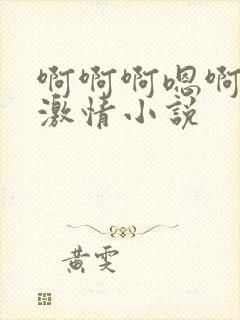 啊啊啊嗯啊
激情小说
黄雯